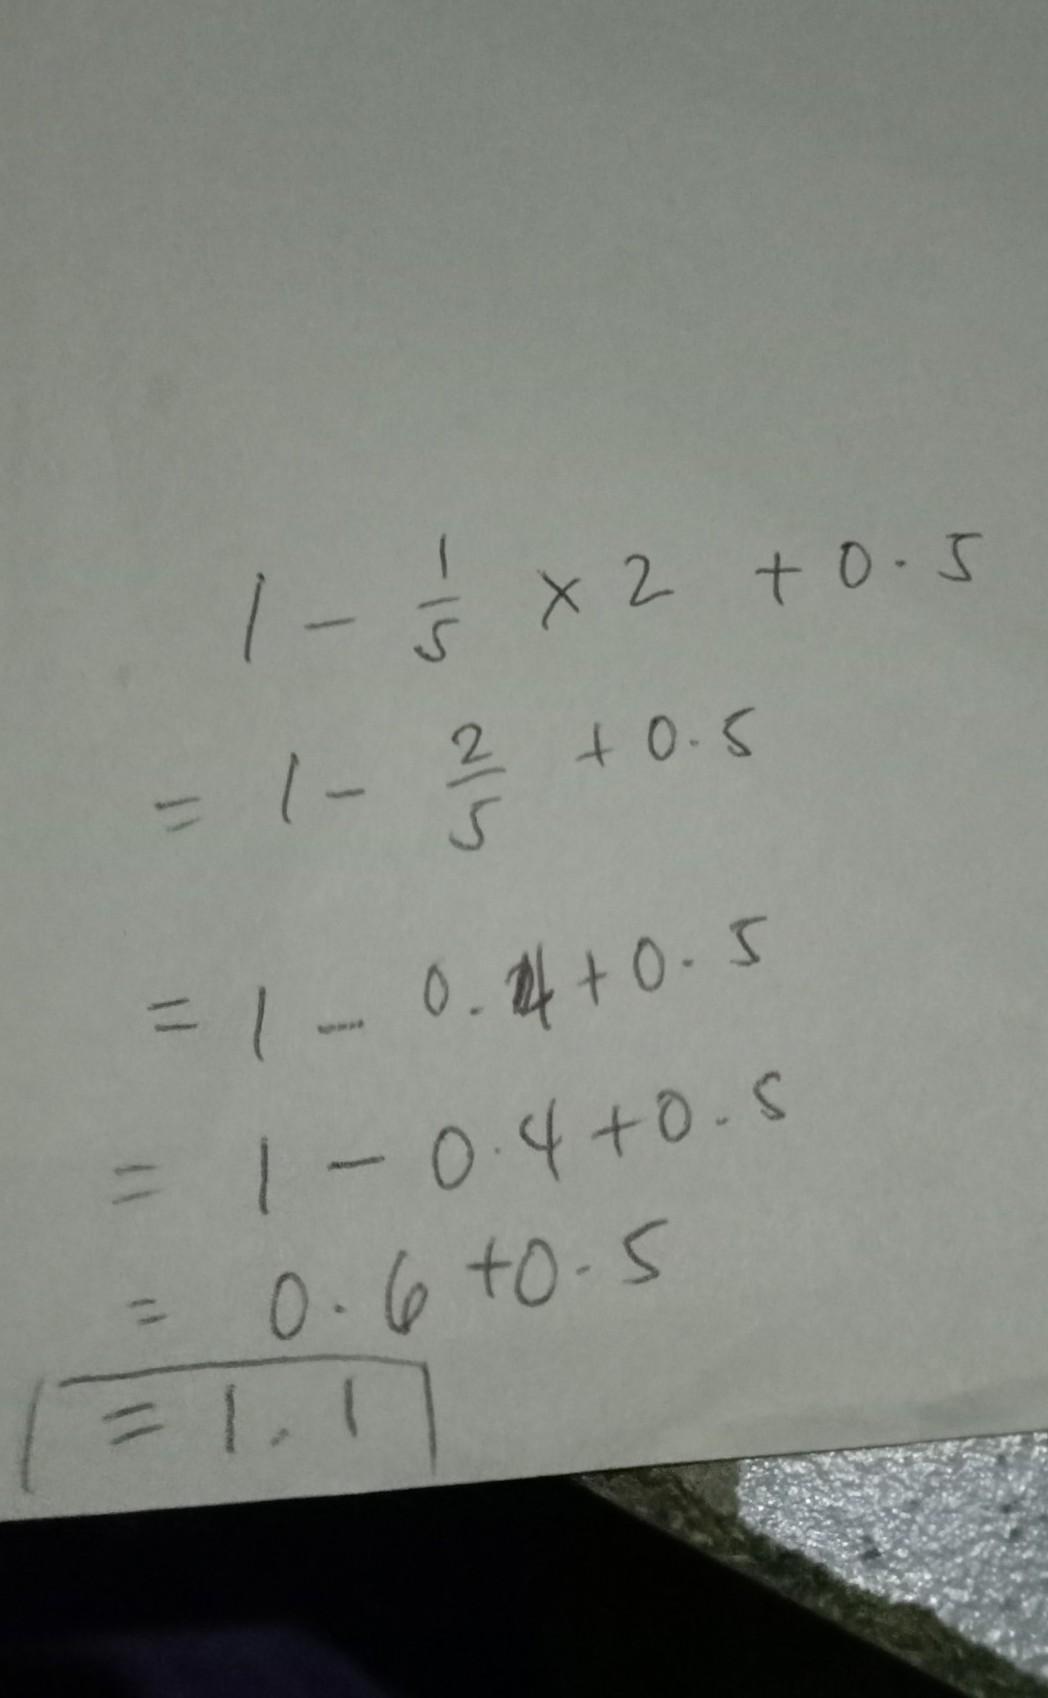 1 - 1/5 × 2 + 0.5
= 1 - 2/5 + 0.5
= 1 - 0.4 + 0.5
= 1 - 0.4 + 0.5
= 0.6 + 0.5
= 1.1